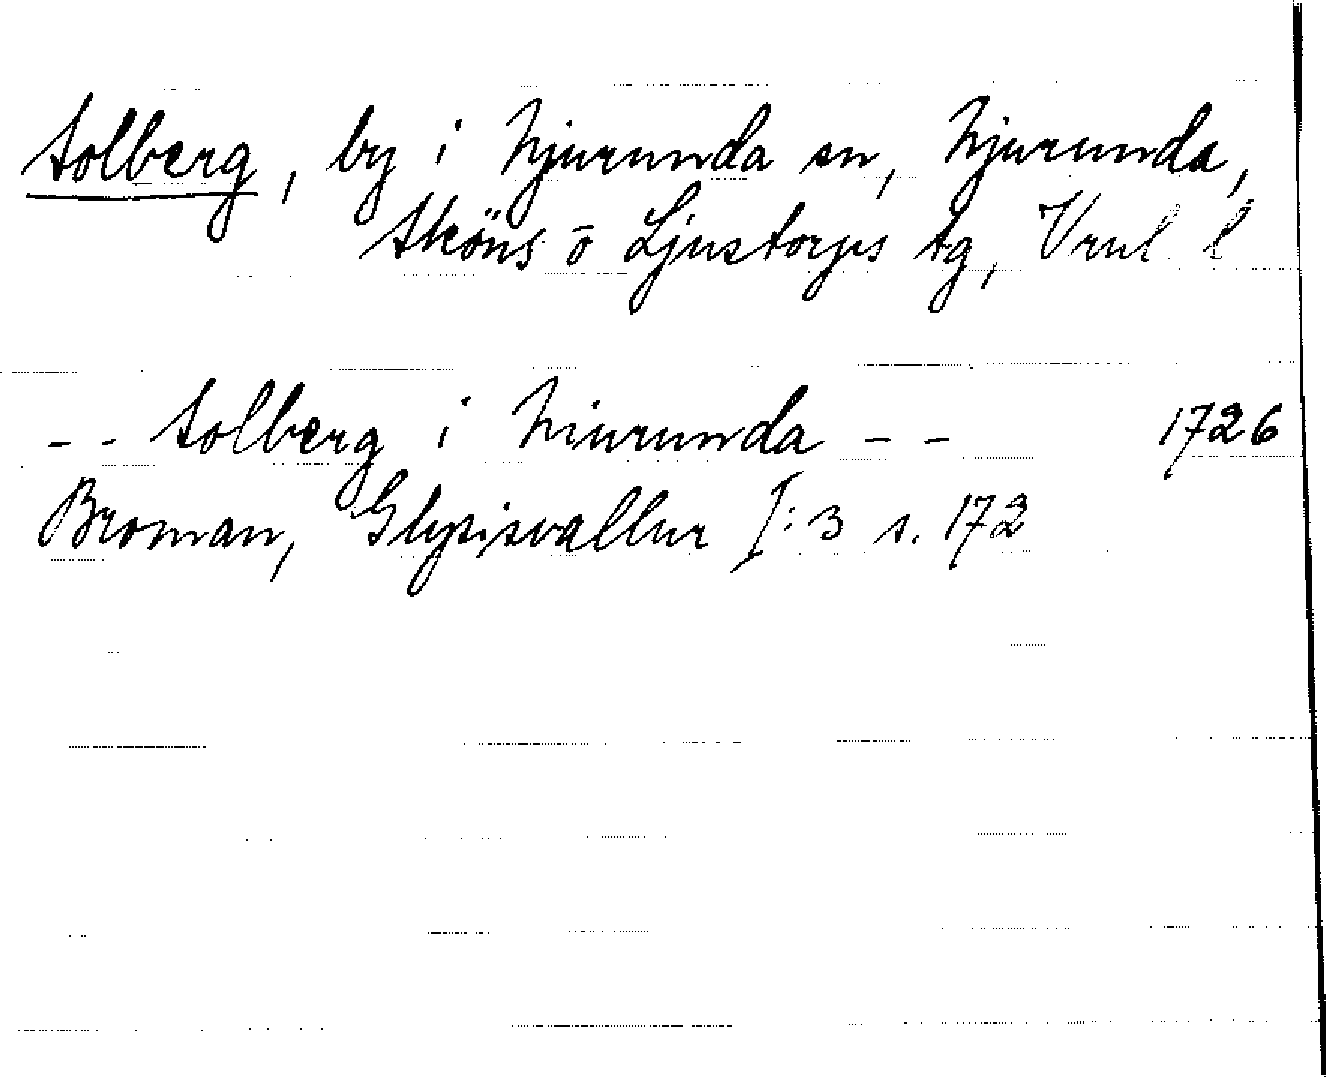 Solberg, by i Njurunda sn, Njurunda,
Sköns o Ljustorps tg, Vrnl l
- - Solberg i Niurunda - - 1726
Broman, Glysisvallur I:3 s. 172